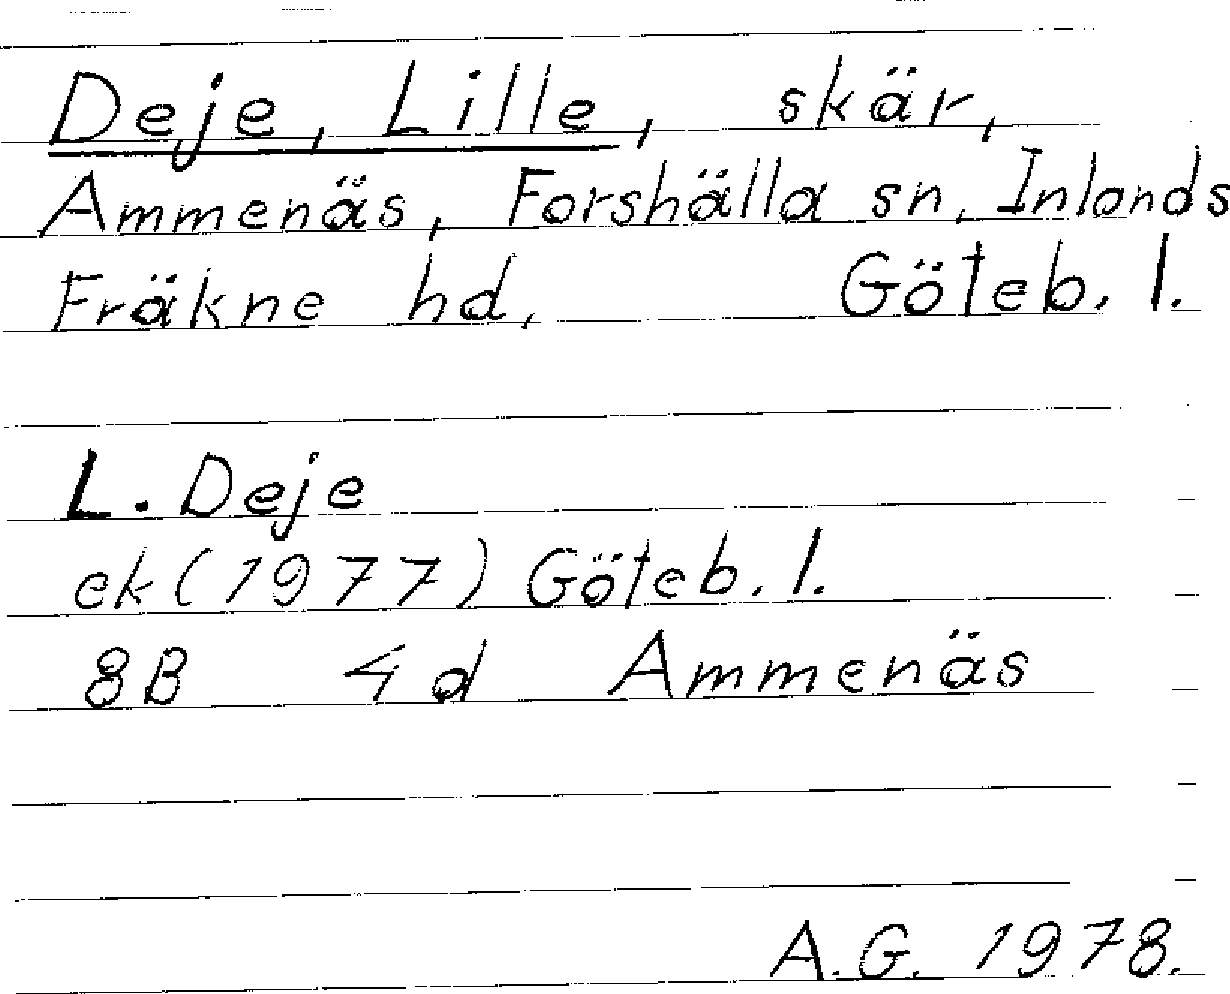 Deje, Lille, skär,
Ammenäs, Forshälla sn, Inlands
Fräkne hd, Göteb. l.
L. Deje
ek (1977) Göteb. l.
8B 4d Ammenäs
A.G. 1978.